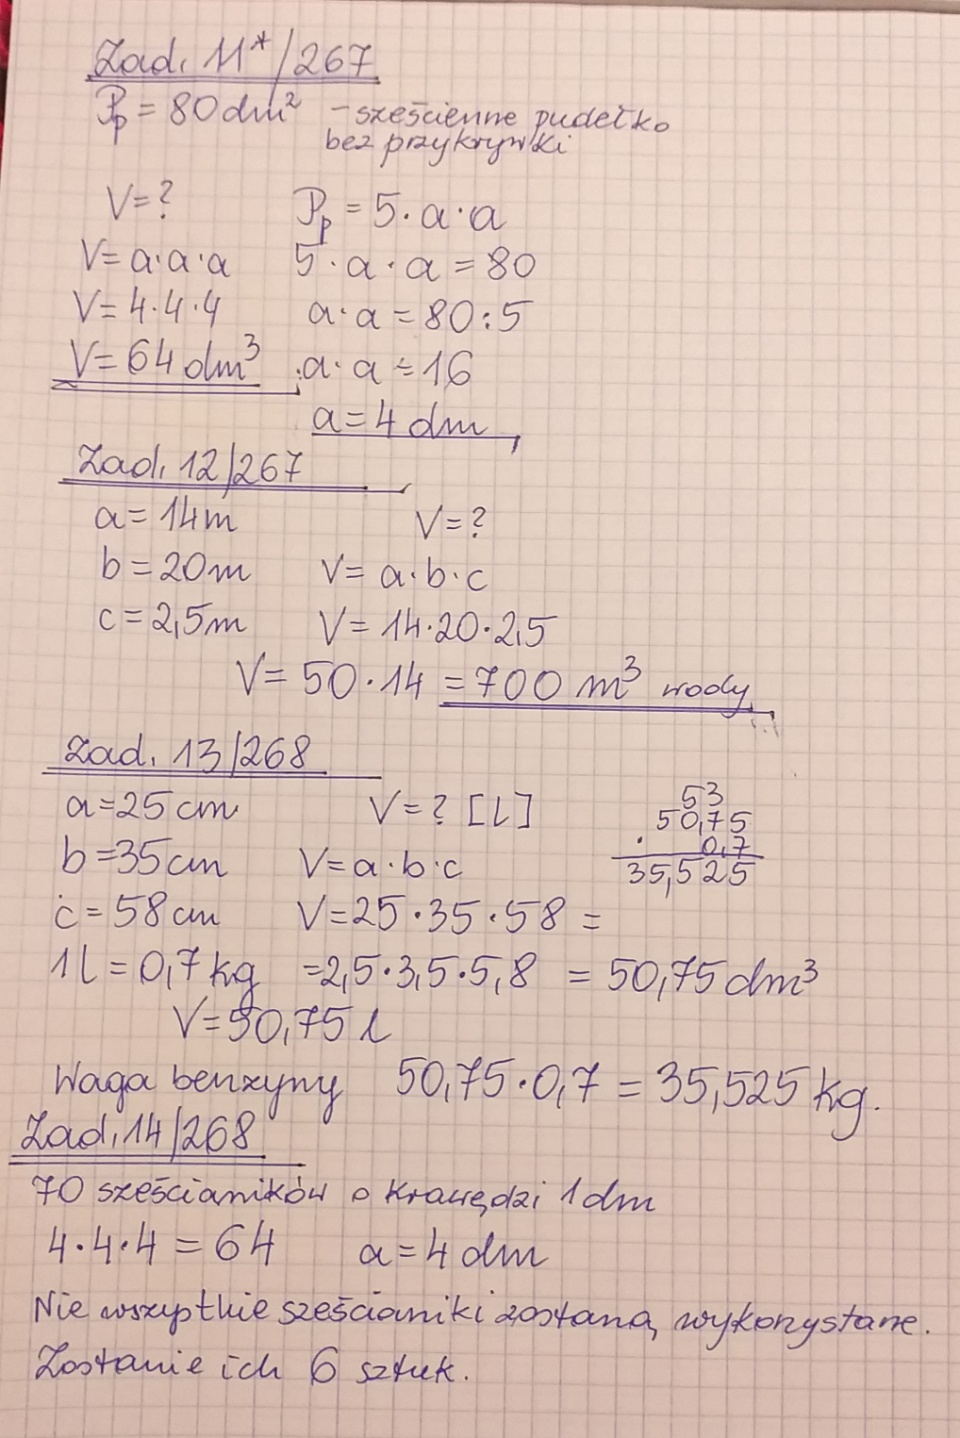 Zad. 11*/267
Pp = 80 dm² - sześcienne pudełko
bez przykrywki
V = ? Pp = 5·a·a
V = a·a·a 5·a·a = 80
V = 4·4·4 a·a = 80:5
V = 64 dm³ a·a = 16
a = 4 dm
Zad. 12/267
a = 14m V = ?
b = 20m V = a·b·c
c = 2,5m V = 14·20·2,5
V = 50·14 = 700 m³ wody
Zad. 13/268
a = 25 cm V = ? [l]
b = 35 cm V = a·b·c
c = 58 cm V = 25·35·58 =
1 l = 0,7 kg = 2,5·3,5·5,8 = 50,75 dm³
V = 50,75 l
53
50,75
· 0,7
35,525
Waga benzyny 50,75·0,7 = 35,525 kg.
Zad. 14/268
70 sześcianików o krawędzi 1 dm
4·4·4 = 64 a = 4 dm
Nie wszystkie sześcianiki zostaną wykorzystane.
Zostanie ich 6 sztuk.